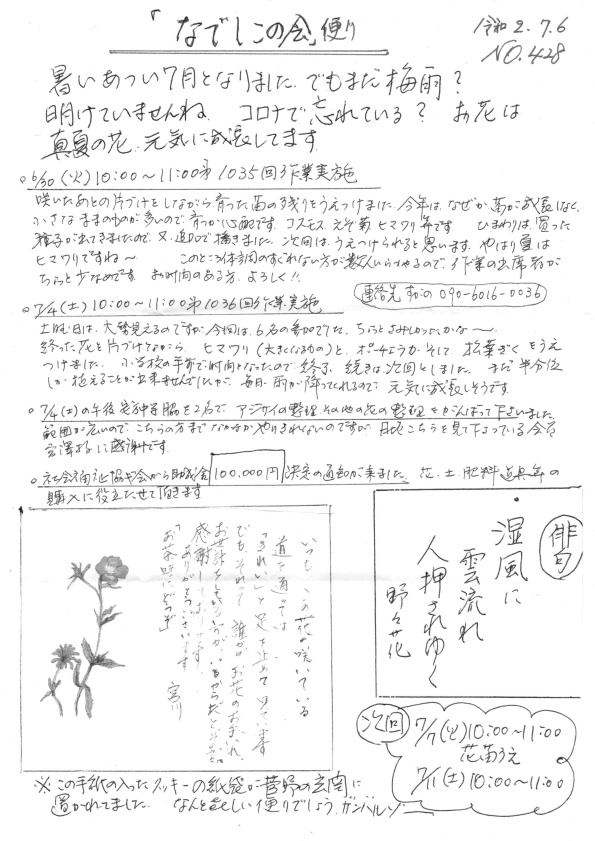 「なでしこの会」便り
令和2.7.6
NO.428
暑いあつい7月となりました。でもまだ梅雨?
明けていませんね。コロナで忘れている? お花は
真夏の花、元気に成長してます
○6/30(火)10:00~11:00第1035回作業実施
咲いたあとの片づけをしながら、育った苗の残りをうえつけました。今年は、なぜか苗が成長しなく
小さなままのものが多いので、育つか心配です。コスモス、えぞ菊、ヒマワリ等です ひまわりは、買った
種子が出てきましたので、又、追加で播きました。次回は、うえつけられると思います。やはり夏は
ヒマワリですね~ このところ体調のすぐれない方が数人いらっやるので、作業の出席者が
ちょっと少なめです お時間のある方、よろしく!!
連絡先 すがの 090-6016-0036
○7/4(土)10:00~11:00第1036回作業実施
土曜日は、大勢見えるのですが、今回は、6名の参加でした。ちょっとさみしかったかな~。
終った花を片づけながら、ヒマワリ(大きくなるもの)と、ポーチュラカ、そして、松葉ぎくをうえ
つけました。小学校の手前で時間となったので終了、続きは次回としました。まだ半分位
しか植えることが出来ませんでしたが、毎日雨が降ってくれるので、元気に成長しそうです
○7/4(土)の午後、 を2名で、アジサイの整理、その他の花の整理をがんばって下さいました。
範囲が広いので、こちらの方までなかなかやりきれないのですが、 こちらを見て下さっている
宮澤 に感謝です。
○社会福祉協ギ会から助成金 100,000円 決定の通知が来ました。花、土、肥料、道具等の
購入に役立たせて頂きます
いつも この花の咲いている
道を通っては
「きれい」と足を止めて見ています
でも、それって 誰かが お花のお手入れ、
お世話をしている方がいるからだと
感謝しております。
ありがとうございます。
「お茶の時にどうぞ」
宮川
俳句
・湿風に
雲流れ
人押されゆく
野々花
次回
7/7(火)10:00~11:00
花苗うえ
7/11(土)10:00~11:00
※この手紙の入ったクッキーの紙袋が菅野の玄関に
置かれてました。なんと美しい便りでしょう。ガンバルゾー